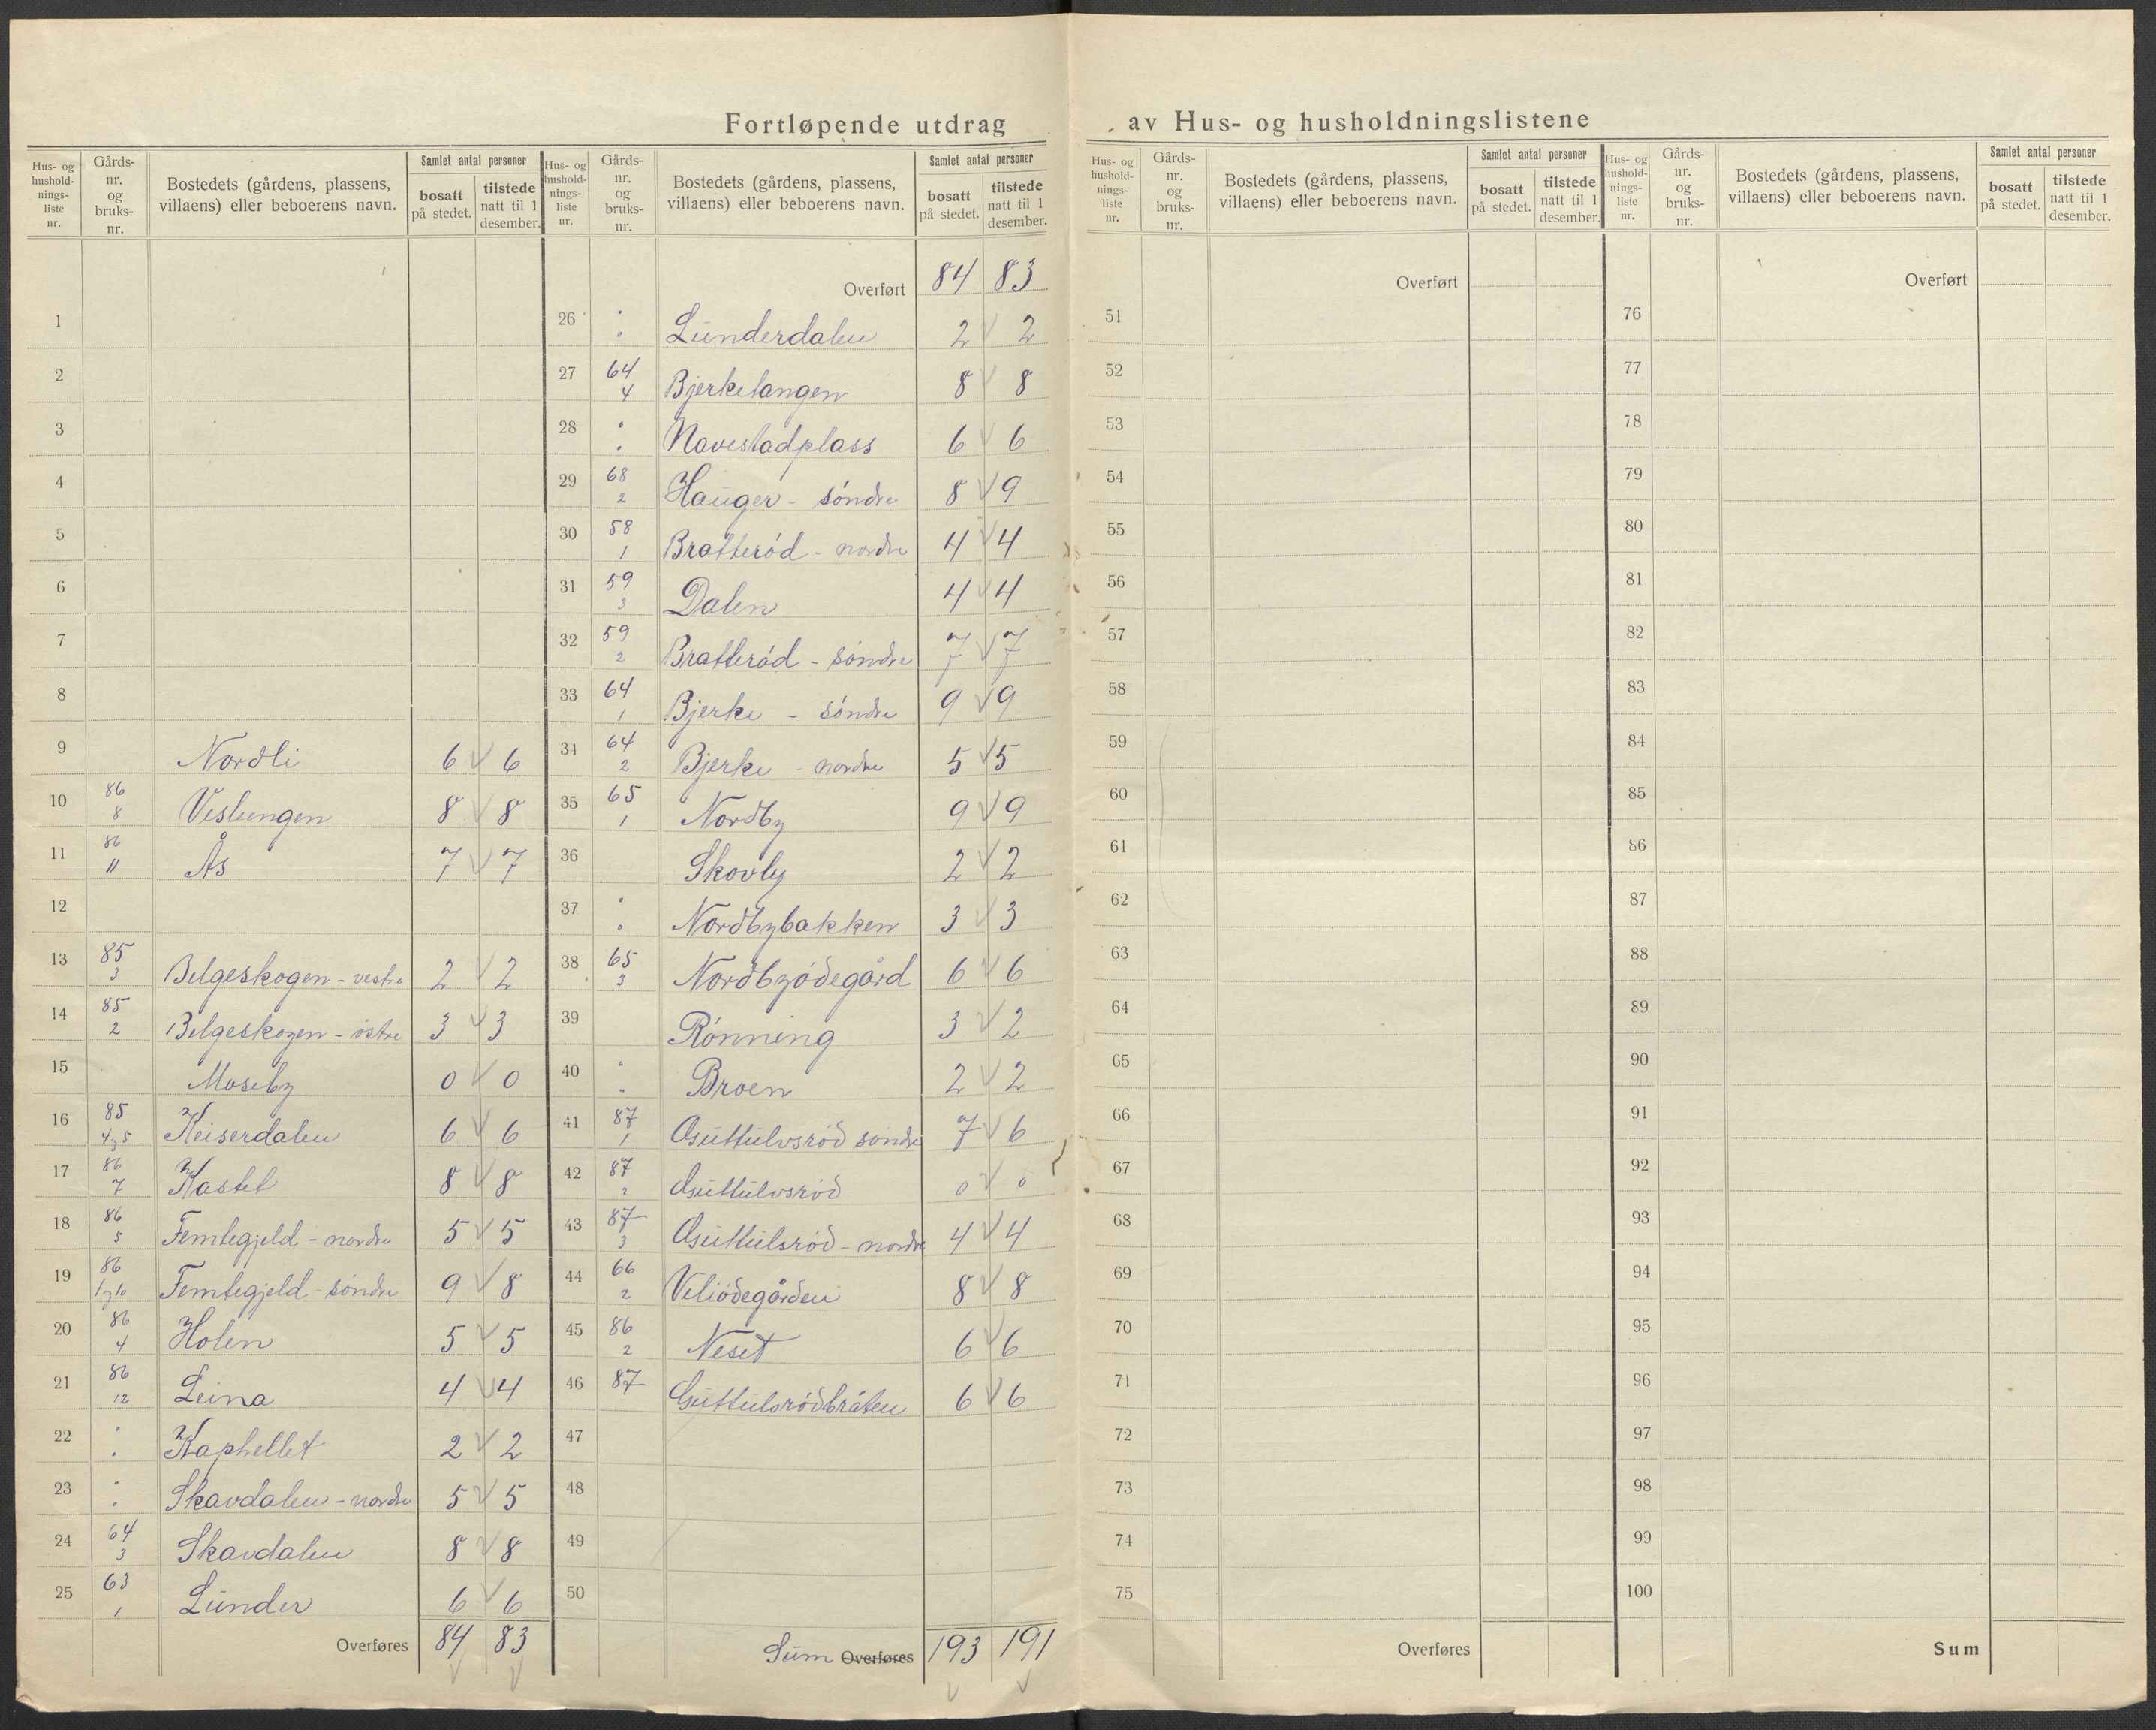 Fortløpende utdrag av Hus- og husholdningslistene
Hus- og hushold-nings-liste nr. | Gårds-nr. og bruks-nr. | Bostedets (gårdens, plassens, villaens) eller beboerens navn. | Samlet antal personer | bosatt på stedet. | tilstede natt til 1 desember.
1
2
3
4
5
6
7
8
9 Nordli 6 6
10 86 8 Veslungen 8 8
11 86 11 Ås 7 7
12
13 85 3 Belgeskogen - vestre 2 2
14 85 2 Belgeskogen - östre 3 3
15 Moseby 0 0
16 85 4 5 Keiserdalen 6 6
17 86 7 Kastet 8 8
18 86 5 Femtegjeld - nordre 5 5
19 86 Femtegjeld - söndre 9 8
20 86 4 Holen 5 5
21 86 12 Leina 4 4
22 " " Kaphellet 2 2
23 " " Skavdalen - nordre 5 5
24 64 3 Skavdalen 8 8
25 63 1 Lunder 6 6
Overføres 84 83
Hus- og hushold-nings-liste nr. | Gårds-nr. og bruks-nr. | Bostedets (gårdens, plassens, villaens) eller beboerens navn. | Samlet antal personer | bosatt på stedet. | tilstede natt til 1 desember.
Overført 84 83
26 " " Lunderdalen 2 2
27 64 4 Bjerketangen 8 8
28 " " Navestadplass 6 6
29 68 2 Hauger - söndre 8 9
30 58 1 Bratteröd - nordre 4 4
31 59 3 Dalen 4 4
32 59 2 Bratteröd - söndre 7 7
33 64 1 Bjerke - söndre 9 9
34 64 2 Bjerke - nordre 5 5
35 65 1 Nordby 9 9
36 Skovly 2 2
37 " " Nordbybakken 3 3
38 65 3 Nordbyödegård 6 6
39 Rönning 3 2
40 " " Broen 2 2
41 87 1 Guttulvsröd söndre 7 6
42 87 2 Guttulvsröd 0 0
43 87 3 Guttulsröd - nordre 4 4
44 66 2 Veliödegården 8 8
45 86 2 Neset 6 6
46 87 Guttulsrödbråten 6 6
47
48
49
50
Sum Overføres 193 191
Hus- og hushold-nings-liste nr. | Gårds-nr. og bruks-nr. | Bostedets (gårdens, plassens, villaens) eller beboerens navn. | Samlet antal personer | bosatt på stedet. | tilstede natt til 1 desember.
Overført
51
52
53
54
55
56
57
58
59
60
61
62
63
64
65
66
67
68
69
70
71
72
73
74
75
Overføres
Hus- og hushold-nings-liste nr. | Gårds-nr. og bruks-nr. | Bostedets (gårdens, plassens, villaens) eller beboerens navn. | Samlet antal personer | bosatt på stedet. | tilstede natt til 1 desember.
Overført
76
77
78
79
80
81
82
83
84
85
86
87
88
89
90
91
92
93
94
95
96
97
98
99
100
Sum